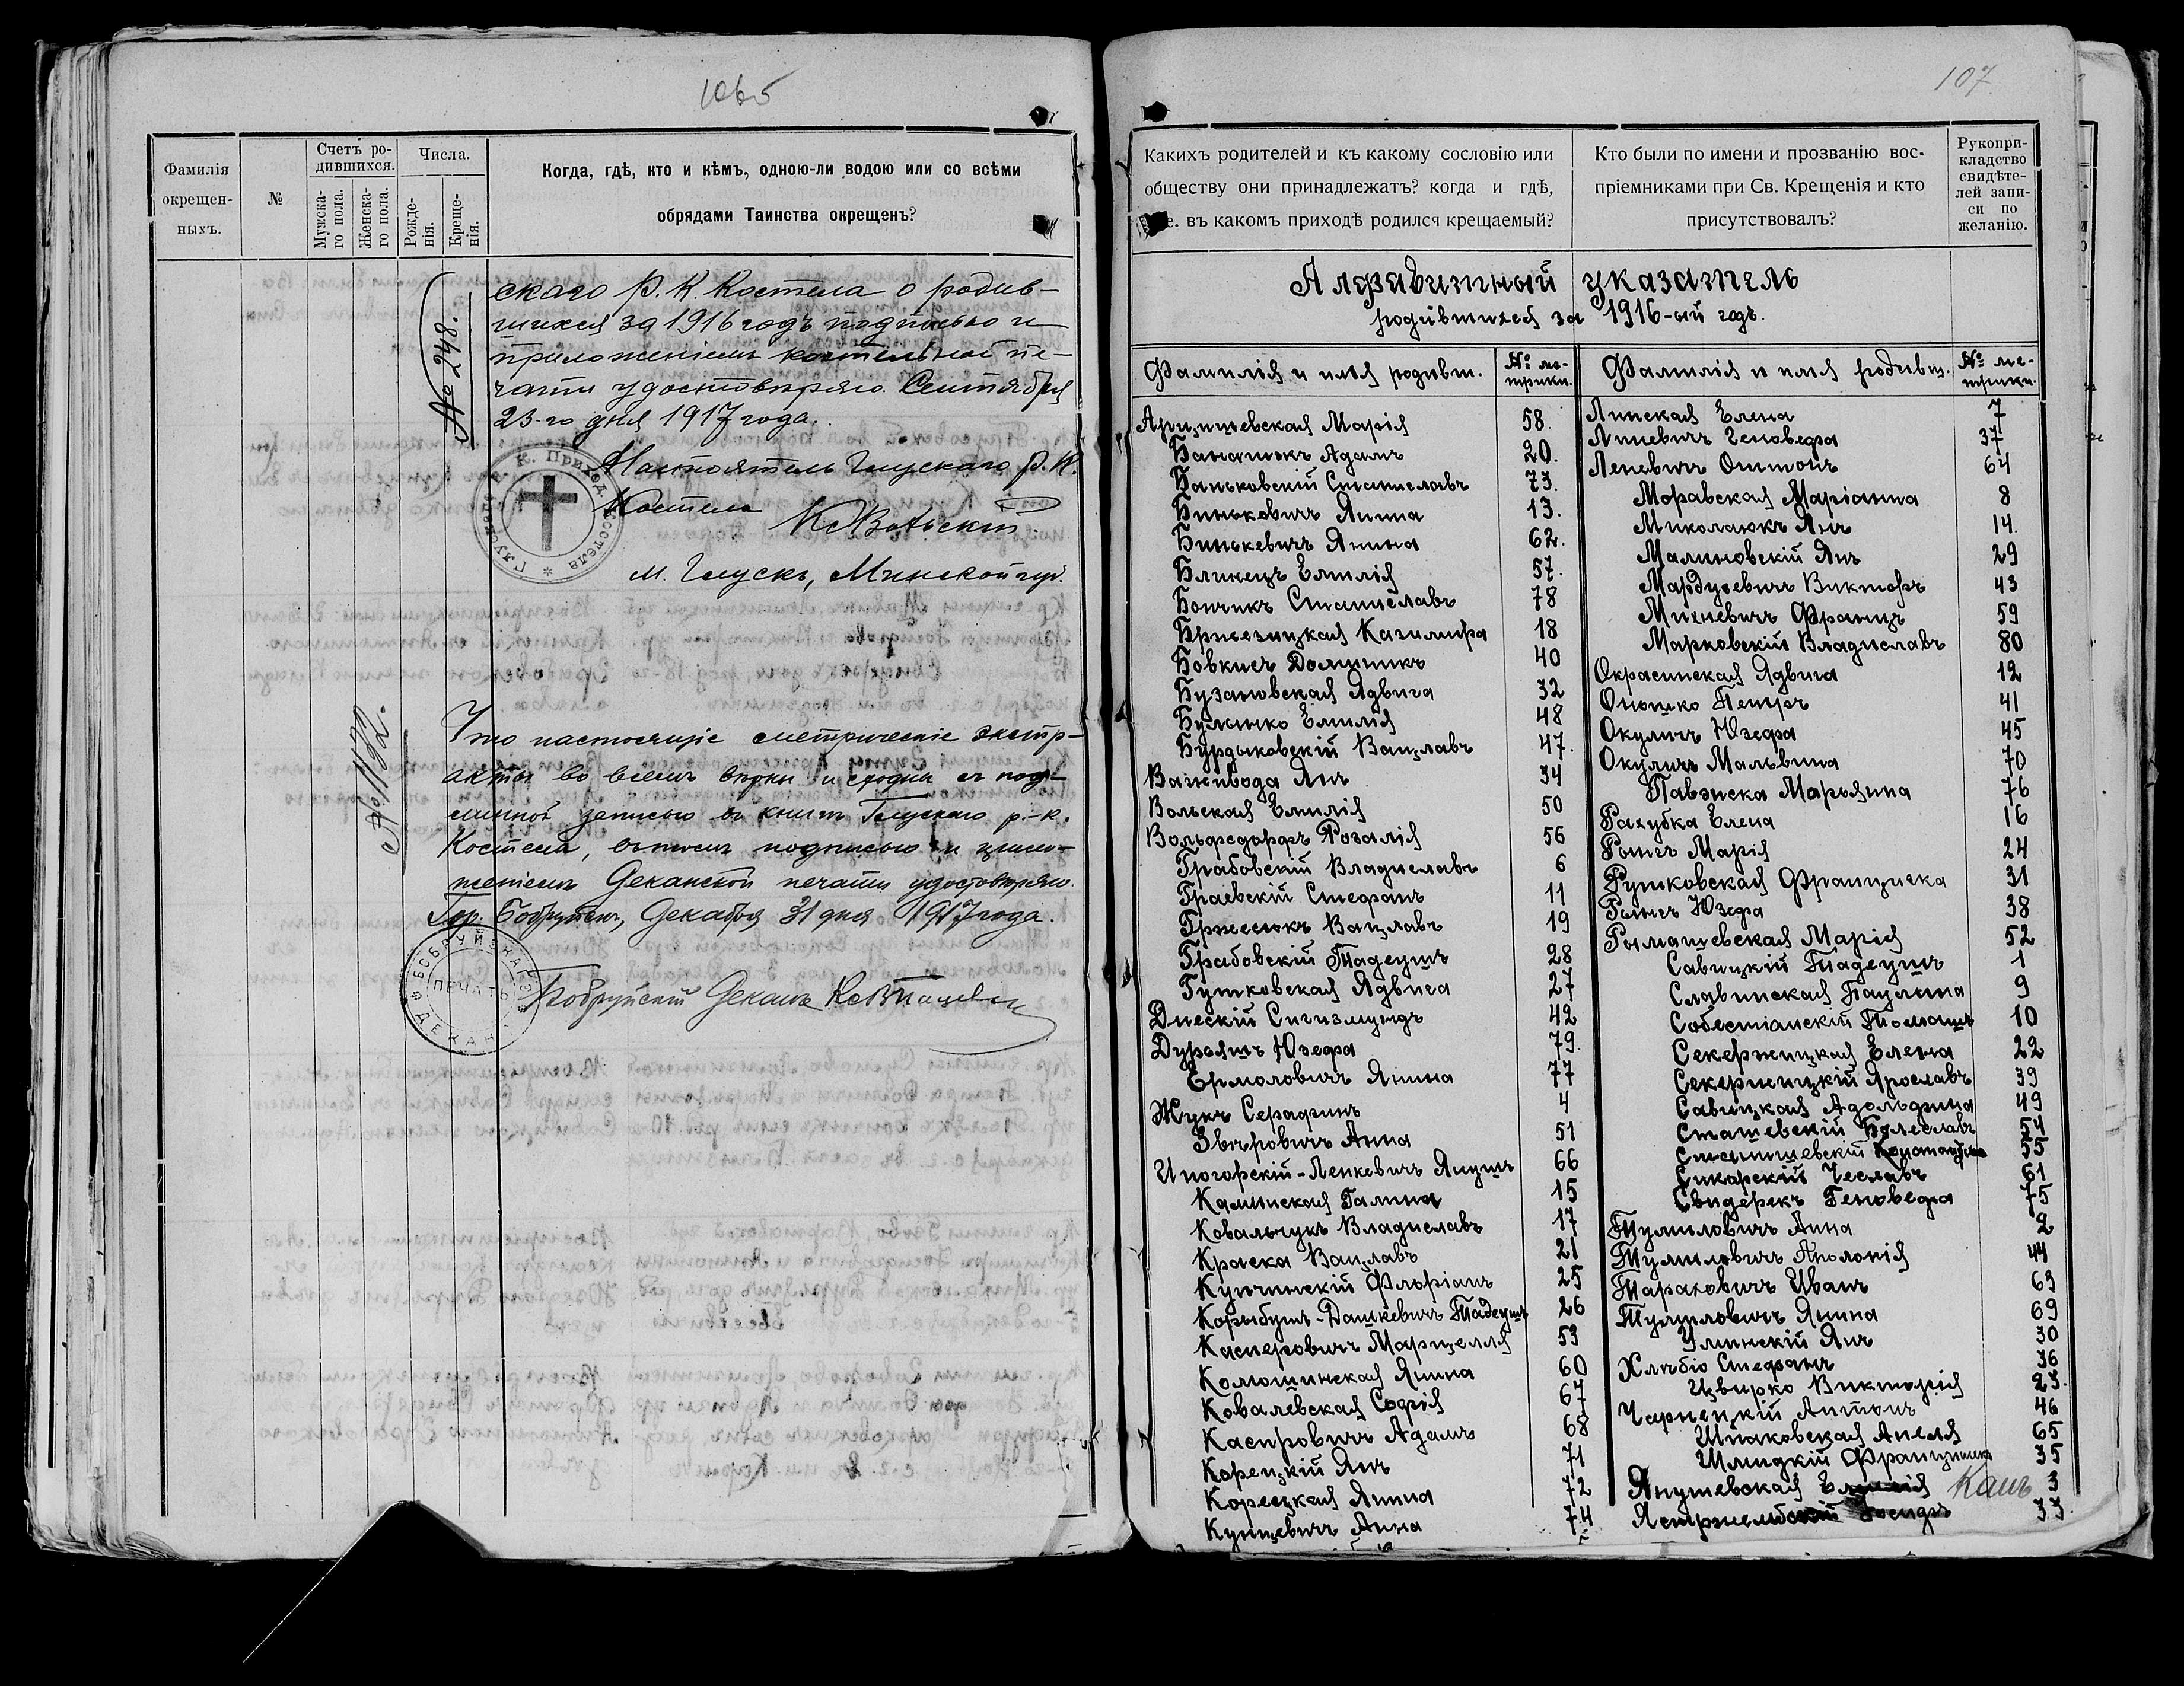 106б
Фамилія окрещенныхъ.
№
Счетъ родившихся.
Мужскаго пола.
Женскаго пола.
Числа.
Рожденія.
Крещенія.
Когда, гдѣ, кто и кѣмъ, одною-ли водою или со всѣми
обрядами Таинства окрещенъ?
№ 248.
скаго Р. К. Костела о родив-
шихся за 1916 годъ подписью и
приложеніемъ костельной пе-
чати удостовѣряю. Сентября
23-го дня 1917 года.
Настоятель Глускаго Р. К.
Костела
м. Глускъ, Минской губ.
№ 1182.
Что настоящіе метрическіе экстр-
акты во всемъ вѣрны и сходны съ под-
линной записью въ книгѣ Глускаго р.-к.
Костела, въ томъ подписью и прило-
женіемъ Деканской печати удостовѣряю.
Гор. Бобруйскъ, Декабря 31 дня 1917 года.
ПЕЧАТЬ
Бобруйскій Деканъ
107
Какихъ родителей и къ какому сословію или
обществу они принадлежатъ? когда и гдѣ,
е. въ какомъ приходѣ родился крещаемый?
Кто были по имени и прозванію вос-
пріемниками при Св. Крещенія и кто
присутствовалъ?
Рукопри-
кладство
свидѣте-
лей запи-
си по
желанію.
Алфавитный указатель
родившихся за 1916-ый годъ.
Фамилія и имя родивш.
№ ме-
трики.
Арцишевская Марія 58.
Банатокъ Адамъ 20.
Баньковскій Станиславъ 73.
Биньковичъ Янина 13.
Бинькевичъ Янина 62.
Блинецъ Емилія 57.
Бончикъ Станиславъ 78
Бржезицкая Казимира 18
Бовкисъ Доминикъ 40
Бузановская Ядвига 32
Булынко Емилія 48
Бурдыковскій Вацлавъ 47.
Важивода Янъ 34
Вольская Емилія 50
Вольфсдорфъ Розалія 56
Грабовскій Владиславъ 6
Граевскій Стефанъ 11
Гржесюкъ Вацлавъ 19
Грабовскій Тадеушъ 28
Гутковская Ядвига 27
Днескій Сигизмундъ 42
Дурояшъ Юзефа 79.
Ермоловичъ Янина 77
Жукъ Серафинъ 4
Звѣровичъ Анна 51
Иногорскій-Ленкевичъ Янушъ 66
Каминская Галина 15
Ковальчукъ Владиславъ 17
Краска Вацлавъ 21
Кунчинскій Флоріанъ 25
Корыбутъ-Дашкевичъ Тадеушъ 26
Касперовичъ Марцелля 53
Комошинская Янина 60
Ковалевская Софія 67
Каспровичъ Адамъ 68
Корецкій Янъ 71
Корецкая Янина 72
Кунцевичъ Анна 74
Фамилія и имя родивш.
№ ме-
трики.
Линская Елена 7
Линевичъ Геновефа 37
Леневичъ Оттонъ 64
Моравская Маріанна 8
Миколаюкъ Янъ 14.
Малиновскій Янъ 29
Мардусевичъ Викторъ 43
Михневичъ Францъ 59
Марковскій Владиславъ 80
Окрасинская Ядвига 12
Оношко Петръ 41
Окуличъ Юзефа 45
Окуличъ Мальвина 70
Павэнска Марьяна 76
Рахубка Елена 16
Рынгъ Марія 24
Рутковская Францишка 31
Рынгъ Юзефа 38
Рымашевская Марія 52
Савицкій Тадеушъ 1
Славинская Паулина 9
Собестіанскій Томашъ 10
Секержицкая Елена 22
Секержицкій Ярославъ 39
Савицкая Адольфина 49
Сташевскій Болеславъ 54
Станишевскій 55
Сикарскій Чеславъ 61
Свидерекъ Геновефа 75
Тумиловичъ Анна 2
Тумиловичъ Аполонія 44
Тараховичъ Иванъ 63
Тумиловичъ Янина 69
Улинскій Янъ 30
Хлѣбіо Стефанъ 36
Цвирко Викторія 23.
Чарнецкій Антонъ 46
Шпаковская Анеля 65
Шмидкій Францишекъ 35
Янушевская Емилія 3
Ястржембскій 33.